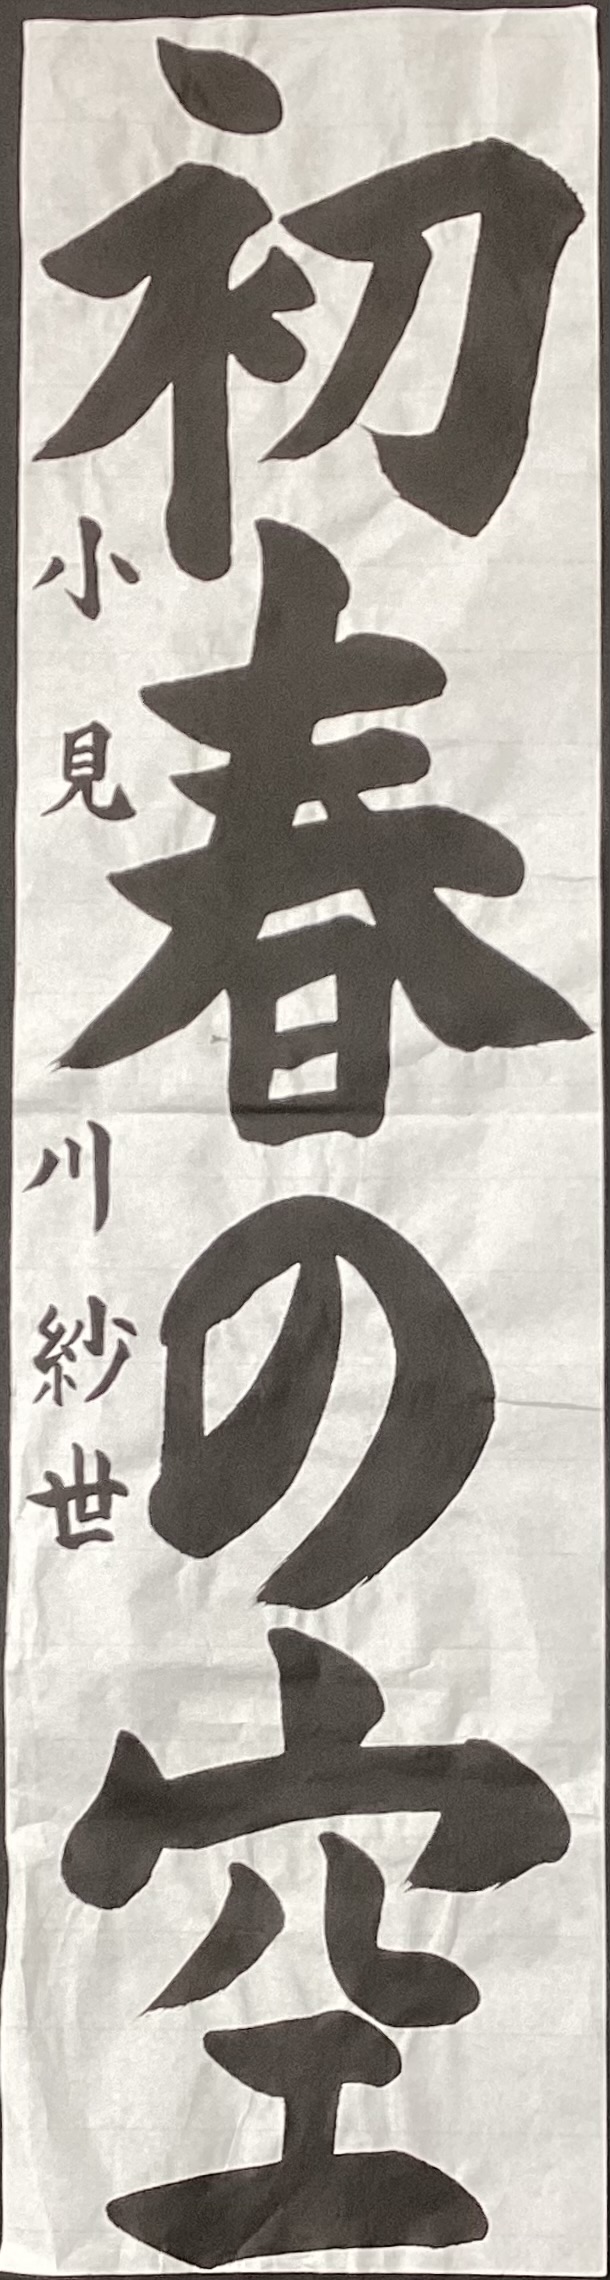 初春の空
小見川紗世